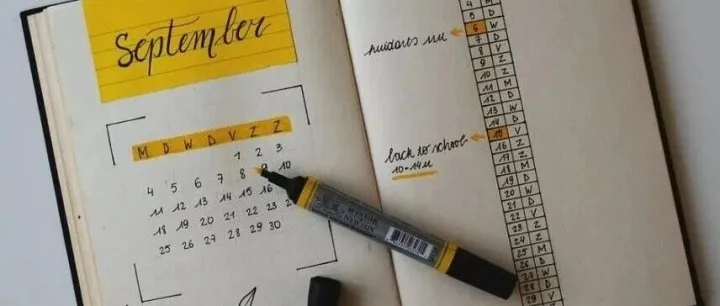 September
M D W D V Z Z
1 2 3
4 5 6 7 8 9 10
11 12 13 14 15 16
18 19 20 21 22 23
25 26 27 28 29 30
4 M
5 D
huidarts
6 W
7 D
8 V
9 Z
10 Z
11 M
12 D
13 W
14 D
back to school
10-14u
15 V
16 Z
17 Z
18 M
19 D
20 W
21 D
22 V
23 Z
24 Z
25 M
26 D
27 W
28 D
29 V
WINSOR
NEWTON